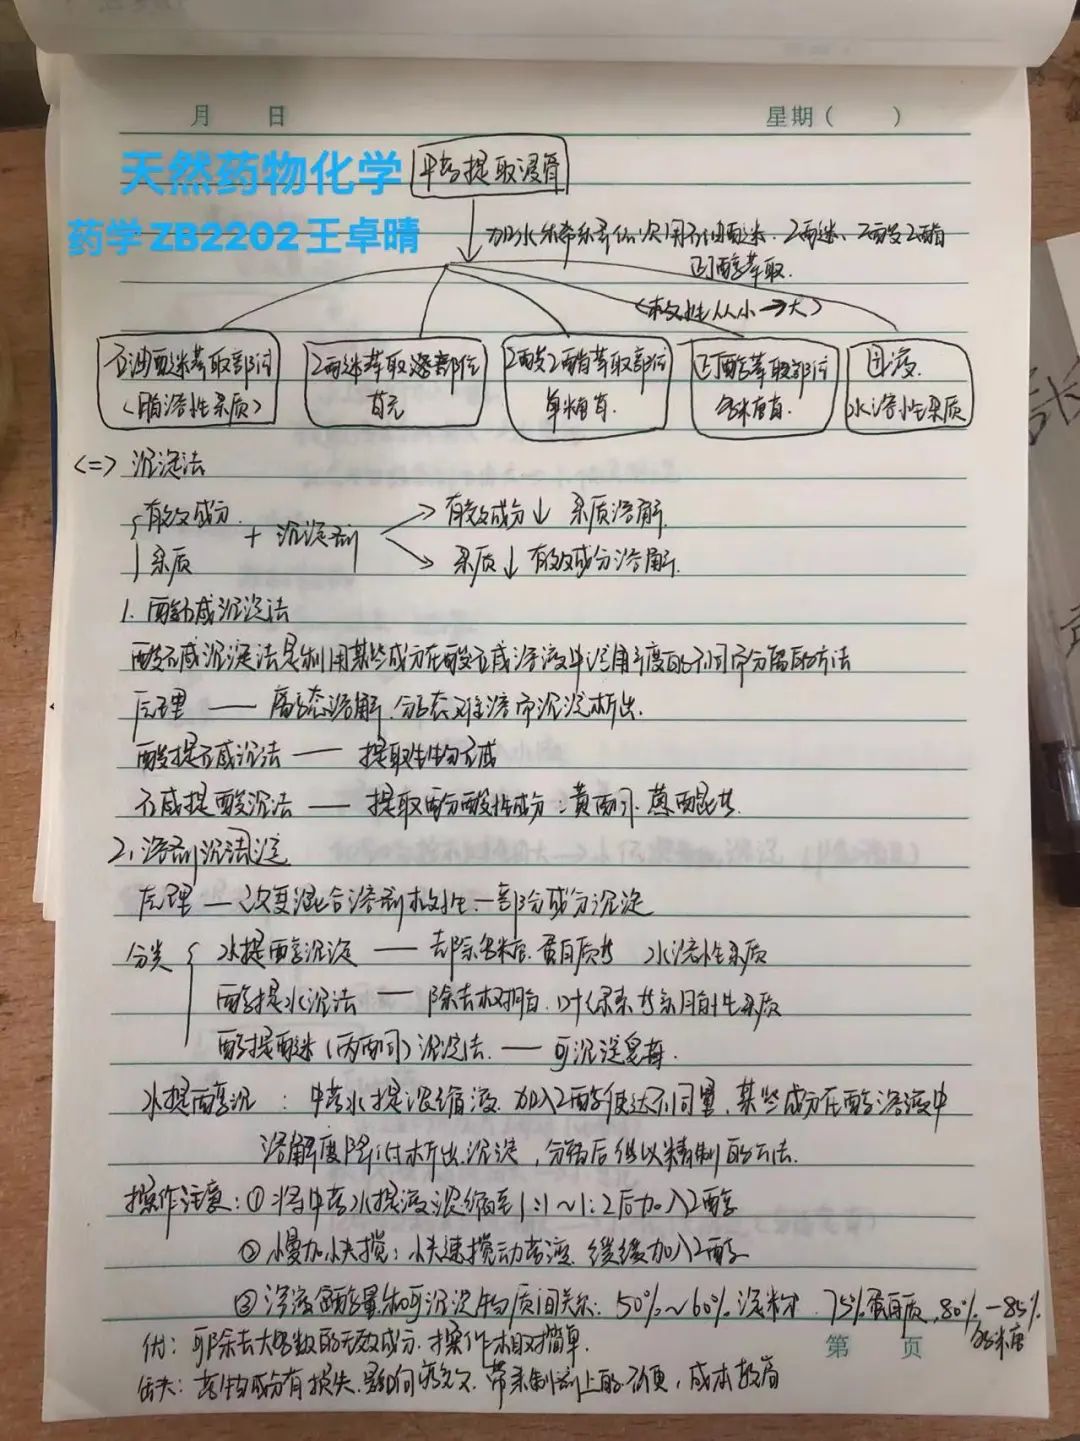 月 日 星期( )
天然药物化学
中药提取浸膏
药学ZB2202王卓晴
加水稀释依次用石油醚、乙醚、乙酸乙酯
正丁醇萃取.
(极性从小→大)
石油醚萃取部位
(脂溶性杂质)
乙醚萃取部位
苷元
乙酸乙酯萃取部位
单糖苷.
正丁醇萃取部位
多糖苷.
母液.
水溶性杂质
<二> 沉淀法
有效成分
杂质
+ 沉淀剂
→ 有效成分↓ 杂质溶解.
→ 杂质↓ 有效成分溶解.
1. 酸碱沉淀法
酸碱沉淀法是利用某些成分在酸碱溶液中溶解度的不同而分离的方法
原理 —— 离子态溶解.分子态难溶而沉淀析出.
酸提碱沉法 —— 提取生物碱
碱提酸沉法 —— 提取酚酸性成分:黄酮.蒽醌类.
2. 溶剂沉淀
原理 — 改变混合溶剂极性.一部分成分沉淀
分类
水提醇沉淀 —— 去除多糖.蛋白质等 水溶性杂质
醇提水沉法 —— 除去树脂.叶绿素等亲脂性杂质
醇提醚(丙酮)沉淀法. —— 可沉淀皂苷.
水提醇沉 : 中药水提浓缩液.加入乙醇使达不同量,某些成分在醇溶液中
溶解度降低析出沉淀,分离后得以精制的方法.
操作注意:① 将中药水提液浓缩至1:1~1:2后加入乙醇
② 慢加快搅:快速搅动药液.缓缓加入乙醇
③ 溶液含醇量和可沉淀物质间关系:50%~60%淀粉.75%蛋白质.80%-85%
多糖
优:可除去大多数的无效成分.操作相对简单.
第 页
缺失:药物成分有损失.影响疗效.带来制剂上的不便,成本较高